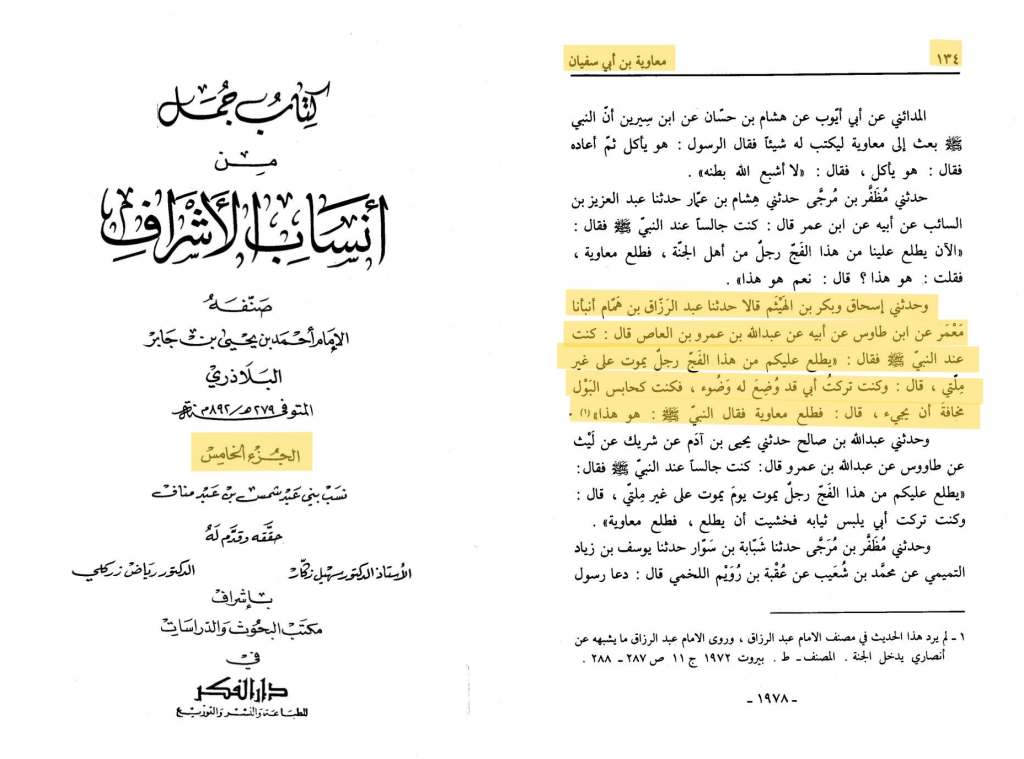 ١٣٤
معاوية بن أبي سفيان
المدائني عن أبي أيّوب عن هشام بن حسّان عن ابن سِيرين أنّ النبي
ﷺ بعث إلى معاوية ليكتب له شيئاً فقال الرسول : هو يأكل ثمّ أعاده
فقال : هو يأكل ، فقال : «لا أشبع الله بطنه» .
حدثني مُظَفَّر بن مُرجَّى حدثني هِشام بن عمّار حدثنا عبد العزيز بن
السائب عن أبيه عن ابن عمر قال : كنت جالساً عند النبيّ ﷺ فقال :
«الآن يطلع علينا من هذا الفَجّ رجلٌ من أهل الجنّة ، فطلع معاوية ،
فقلت : هو هذا ؟ قال : نعم هو هذا» .
وحدثني إسحاق وبكر بن الهَيْثَم قالا حدثنا عبد الرَزّاق بن هَمّام أنبأنا
مَعْمَر عن ابن طاوس عن أبيه عن عبدالله بن عمرو بن العاص قال : كنت
عند النبيّ ﷺ فقال : «يطلع عليكم من هذا الفَجّ رجلٌ يموت على غير
مِلّتي ، قال : وكنت تركتُ أبي قد وُضِعَ له وَضُوء ، فكنت كحابس البَوْل
مخافةَ أن يجيء ، قال : فطلع معاوية فقال النبيّ ﷺ : هو هذا» (١) .
وحدثني عبدالله بن صالح حدثني يحيى بن آدَم عن شريك عن لَيْث
عن طاووس عن عبدالله بن عمرو قال: كنت جالساً عند النبيّ ﷺ فقال:
«يطلع عليكم من هذا الفَجّ رجلٌ يموت يومَ يموت على غير مِلتّي ، قال :
وكنت تركت أبي يلبس ثيابه فخشيت أن يطلع ، فطلع معاوية» .
وحدثني مُظَفَّر بن مُرَجَّى حدثنا شَبّابة بن سَوّار حدثنا يوسف بن زياد
التميمي عن محمّد بن شُعَيب عن عُقْبة بن رُوَيْم اللخمي قال : دعا رسول
١ ـ لم يرد هذا الحديث في مصنف الامام عبد الرزاق ، وروى الامام عبد الرزاق ما يشبهه عن
أنصاري يدخل الجنة . المصنف ـ ط . بيروت ١٩٧٢ ج ١١ ص ٢٨٧ ـ ٢٨٨ .
ـ ١٩٧٨ ـ
كتاب جمل
من
أنساب الأشراف
صنّفه
الإمام أحمد بن يحيى بن جابر
البلاذري
المتوفى ٢٧٩هـ/٨٩٢م
الجزء الخامس
نسب بني عبد شمس بن عبد مناف
حققه وقدّم له
الأستاذ الدكتور سهيل زكّار
الدكتور رياض زركلي
بإشراف
مكتب البحوث والدراسات
في
دار الفكر
للطباعة والنشر والتوزيع